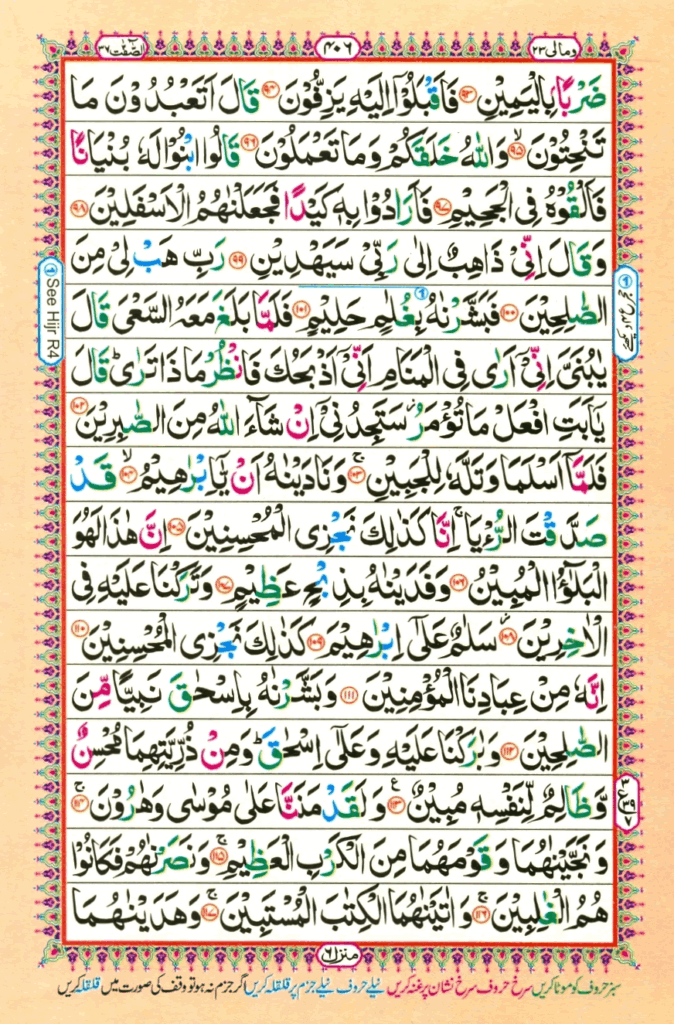 الصّٰٓفّٰت ٣٧
٤٠٦
وما لی ٢٣
ضَرْبًۢا بِالْیَمِیْنِ ﴿٩٣﴾ فَاَقْبَلُوْۤا اِلَیْهِ یَزِفُّوْنَ ﴿٩٤﴾ قَالَ اَتَعْبُدُوْنَ مَا
تَنْحِتُوْنَ ﴿٩٥﴾ۙ وَاللّٰهُ خَلَقَكُمْ وَمَا تَعْمَلُوْنَ ﴿٩٦﴾ قَالُوا ابْنُوْا لَهٗ بُنْیَانًا
فَاَلْقُوْهُ فِی الْجَحِیْمِ ﴿٩٧﴾ فَاَرَادُوْا بِهٖ كَیْدًا فَجَعَلْنٰهُمُ الْاَسْفَلِیْنَ ﴿٩٨﴾
وَقَالَ اِنِّیْ ذَاهِبٌ اِلٰی رَبِّیْ سَیَهْدِیْنِ ﴿٩٩﴾ رَبِّ هَبْ لِیْ مِنَ
الصّٰلِحِیْنَ ﴿١٠٠﴾ فَبَشَّرْنٰهُ بِغُلٰمٍ حَلِیْمٍ ﴿١٠١﴾ فَلَمَّا بَلَغَ مَعَهُ السَّعْیَ قَالَ
یٰبُنَیَّ اِنِّیْۤ اَرٰی فِی الْمَنَامِ اَنِّیْۤ اَذْبَحُكَ فَانْظُرْ مَاذَا تَرٰی ؕ قَالَ
یٰۤاَبَتِ افْعَلْ مَا تُؤْمَرُ ؗ سَتَجِدُنِیْۤ اِنْ شَآءَ اللّٰهُ مِنَ الصّٰبِرِیْنَ ﴿١٠٢﴾
فَلَمَّاۤ اَسْلَمَا وَتَلَّهٗ لِلْجَبِیْنِ ﴿١٠٣﴾ۚ وَنَادَیْنٰهُ اَنْ یّٰۤاِبْرٰهِیْمُ ﴿١٠٤﴾ۙ قَدْ
صَدَّقْتَ الرُّءْیَا ۚ اِنَّا كَذٰلِكَ نَجْزِی الْمُحْسِنِیْنَ ﴿١٠٥﴾ اِنَّ هٰذَا لَهُوَ
الْبَلٰٓؤُا الْمُبِیْنُ ﴿١٠٦﴾ وَفَدَیْنٰهُ بِذِبْحٍ عَظِیْمٍ ﴿١٠٧﴾ وَتَرَكْنَا عَلَیْهِ فِی
الْاٰخِرِیْنَ ﴿١٠٨﴾ۖ سَلٰمٌ عَلٰۤی اِبْرٰهِیْمَ ﴿١٠٩﴾ كَذٰلِكَ نَجْزِی الْمُحْسِنِیْنَ ﴿١١٠﴾
اِنَّهٗ مِنْ عِبَادِنَا الْمُؤْمِنِیْنَ ﴿١١١﴾ وَبَشَّرْنٰهُ بِاِسْحٰقَ نَبِیًّا مِّنَ
الصّٰلِحِیْنَ ﴿١١٢﴾ وَبٰرَكْنَا عَلَیْهِ وَعَلٰۤی اِسْحٰقَ ؕ وَمِنْ ذُرِّیَّتِهِمَا مُحْسِنٌ
وَّظَالِمٌ لِّنَفْسِهٖ مُبِیْنٌ ﴿١١٣﴾ع وَلَقَدْ مَنَنَّا عَلٰی مُوْسٰی وَهٰرُوْنَ ﴿١١٤﴾ۚ
وَنَجَّیْنٰهُمَا وَقَوْمَهُمَا مِنَ الْكَرْبِ الْعَظِیْمِ ﴿١١٥﴾ۚ وَنَصَرْنٰهُمْ فَكَانُوْا
هُمُ الْغٰلِبِیْنَ ﴿١١٦﴾ۚ وَاٰتَیْنٰهُمَا الْكِتٰبَ الْمُسْتَبِیْنَ ﴿١١٧﴾ۚ وَهَدَیْنٰهُمَا
See Hijr R4
٣
ع
٣٩
٧
منزل ٦
سبز حروف کو موٹا کریں سرخ حروف سرخ نشان پر غنہ کریں نیلے حروف نیلے جزم پر قلقلہ کریں اگر جزم نہ ہو تو وقف کی صورت میں قلقلہ کریں